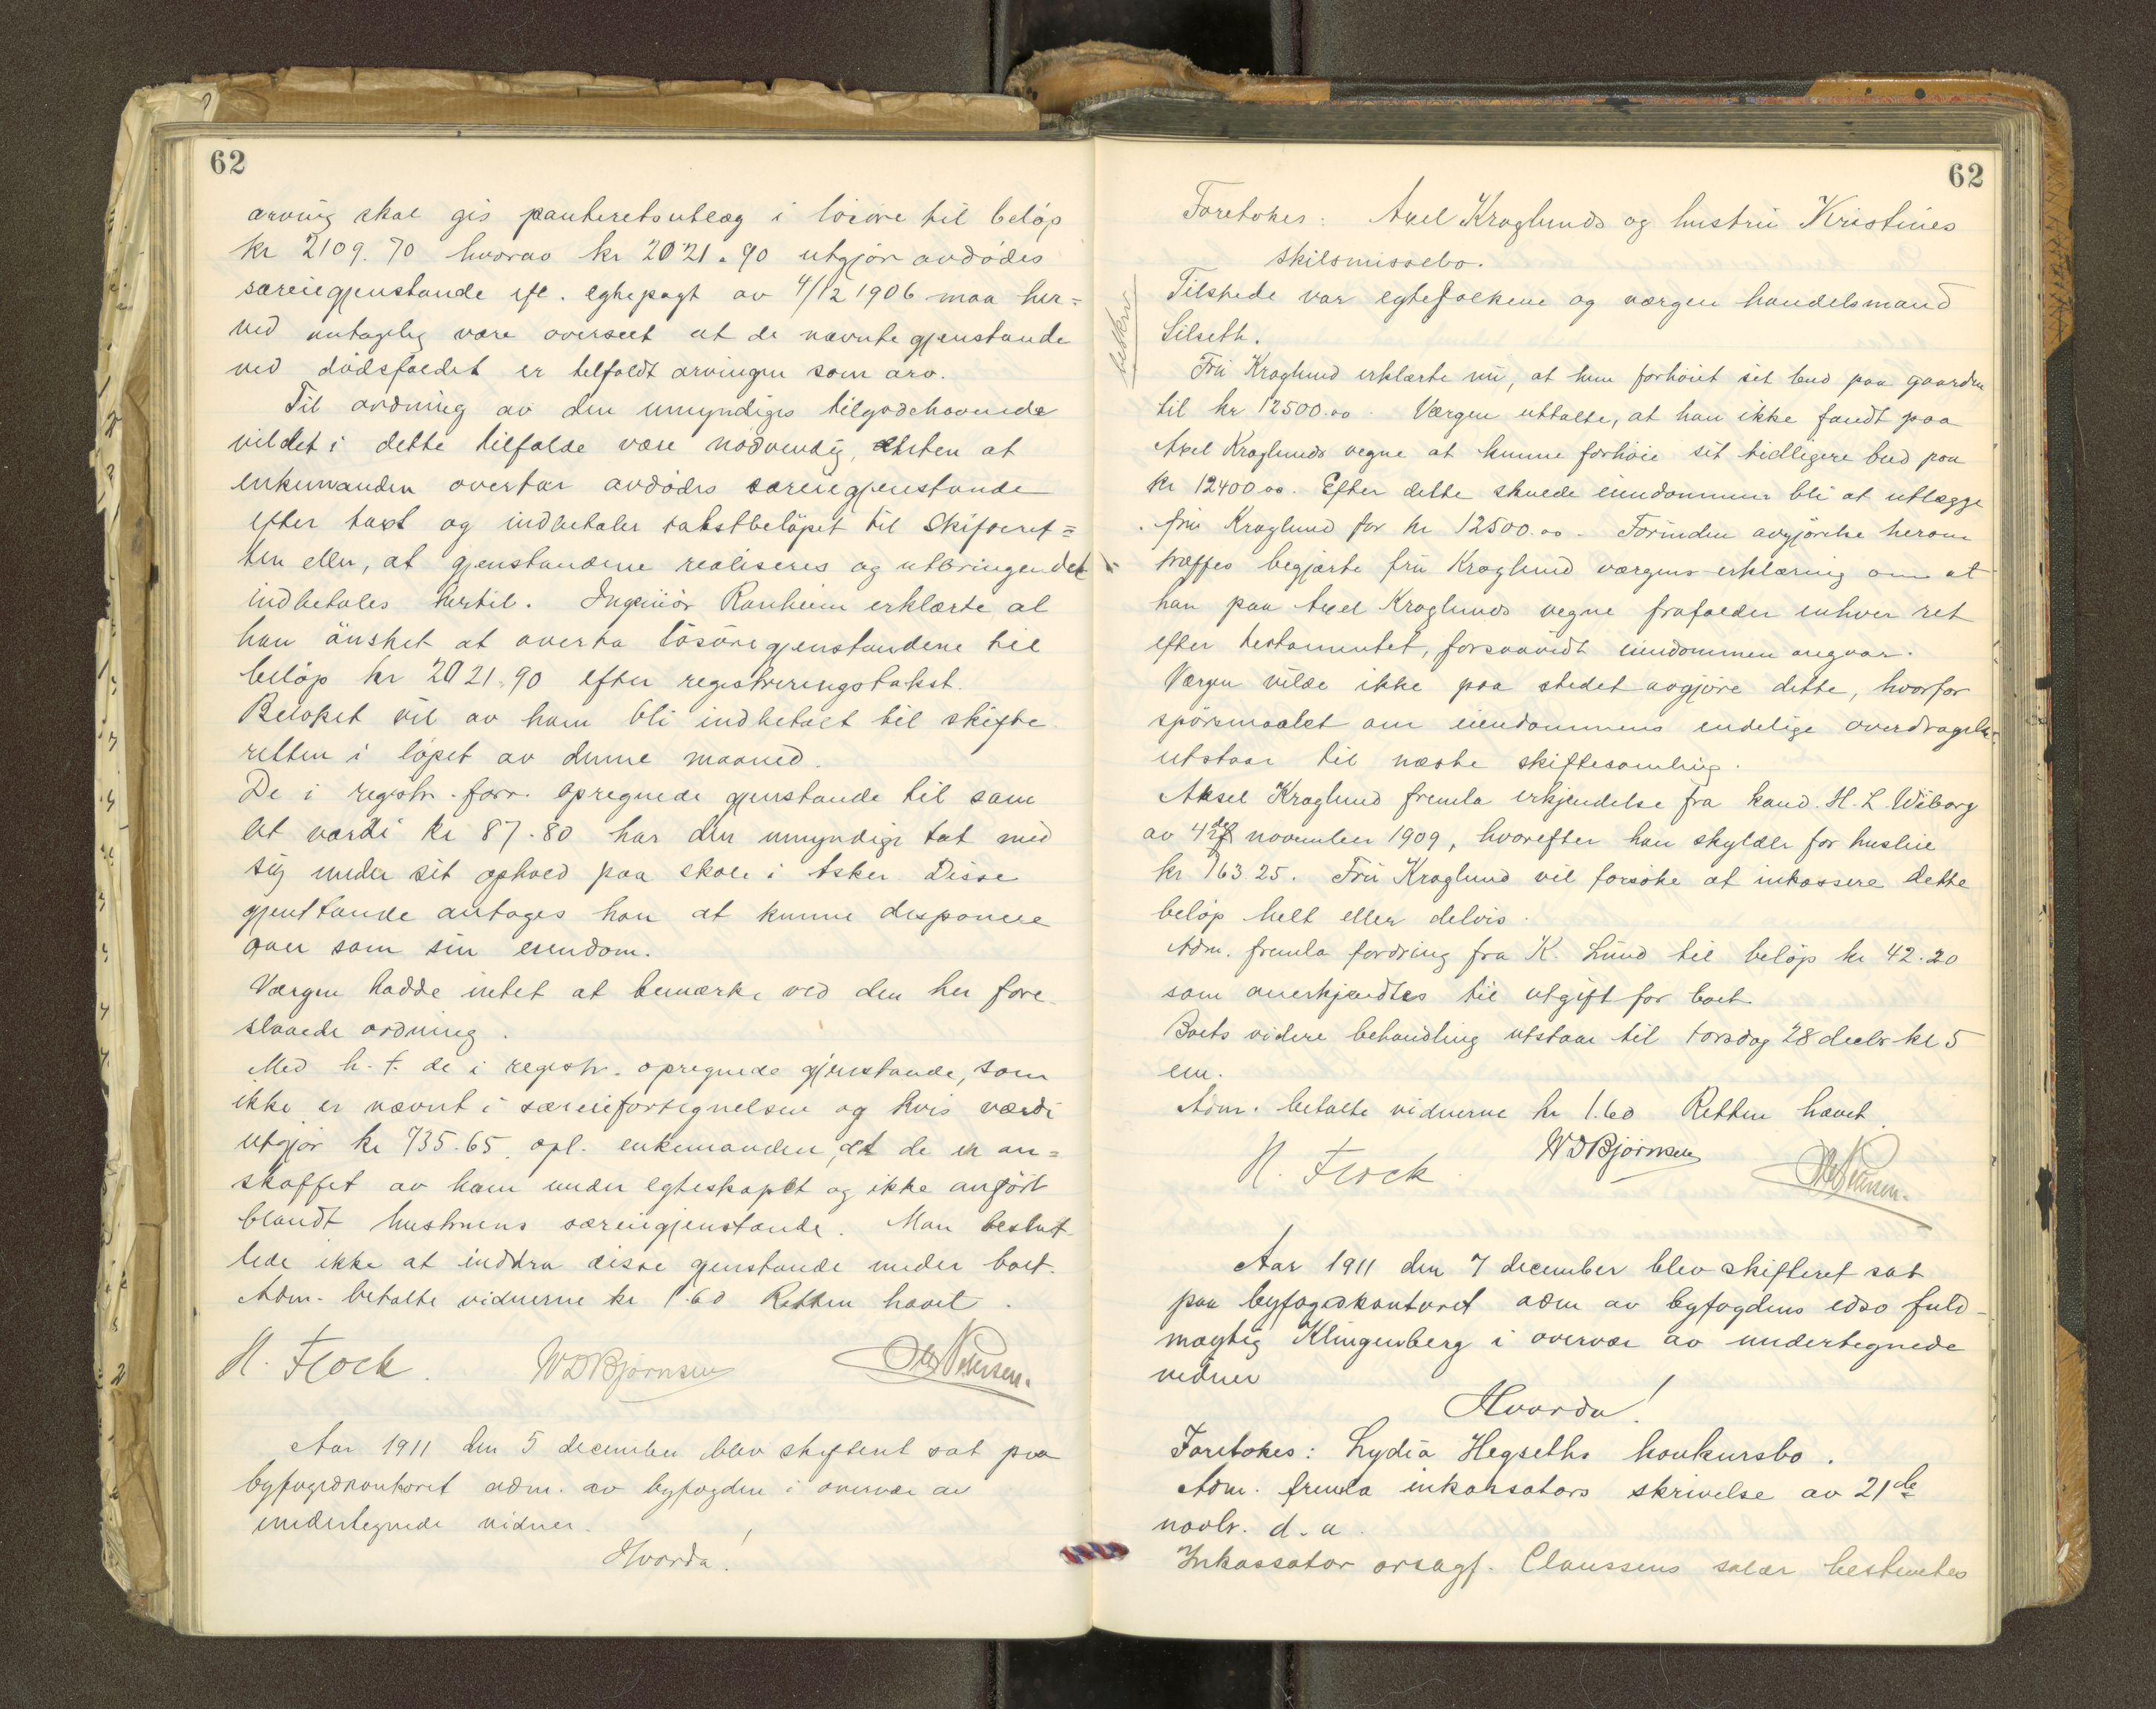 62
arving skal gis panteretsutlæg i lösöre til belöp
kr 2109.70 hvorav kr 2021.90 utgjør avdödes
særeiegjenstande ifl. egtepagt av 4/12 1906 maa her=
ved antagelig være overseet at de nævnte gjenstande
ved dödsfaldet er tilfaldt arvingen som arv.
Til ordning av den umyndiges tilgodehavende
vil det i dette tilfælde være nödvendig, enten at
enkemanden overtar avdödes særeiegjenstande
efter taxt og indbetaler takstbelöpet til Skifteret=
ten eller, at gjenstandene realiseres og utbringendet
indbetales hertil. Ingeniör Ranheim erklærte at
han önsket at overta lösöregjenstandene til
belöp kr 2021.90 efter registreringstakst.
Beløpet vil av ham bli indbetalt til skifte
retten i löpet av denne maaned.
De i registr. forr. opregnede gjenstande til sam
let værdi kr 87.80 har den umyndige tat med
sig under sit ophold paa skole i Asker. Disse
gjenstande antages han at kunne disponere
over som sin eiendom.
Værgen hadde intet at bemærke ved den her fore
slaaede ordning.
Med h. t. de i registr. opregnede gjenstande, som
ikke er nævnt i særeiefortegnelsen og hvis værdi
utgjør kr 735.65, opl. enkemanden, at de er an=
skaffet av ham under egteskapet og ikke anfört
blandt hustruens særeiegjenstande. Man beslut
tede ikke at inddra disse gjenstande under boet.
Adm. betalte vidnerne kr 1.60 Retten hævet.
N. Flock. WDBjørnsen Ole Petersen.
Aar 1911 den 5 december blev skifteret sat paa
byfogedkontoret adm. av byfogden i overvær av
undertegnede vidner.
Hvorda!
62
Foretokes: Axel Kraglunds og hustru Kristines
skilsmissebo.
Tilstede var egtefolkene og værgen handelsmand
Silseth.
beskrev
Fru Kraglund erklærte nu, at hun forhöiet sit bud paa gaarden
til kr 12500.00. Værgen uttalte, at han ikke fandt paa
Axel Kraglunds vegne at kunne forhöie sit tidligere bud paa
kr 12400.00. Efter dette skulde eiendommen bli at utlægge
fru Kraglund for kr 12500.00. Forinden avgjörelse herom
træffes begjærte fru Kraglund værgens erklæring om at
han paa Axel Kraglunds vegne frafalder enhver ret
efter testamentet, forsaavidt eiendommen angaar.
Værgen vilde ikke paa stedet avgjöre dette, hvorfor
spörsmaalet om eiendommens endelige overdragelse
utstaar til næste skiftesamling.
Aksel Kraglund fremla erkjendelse fra kand. H. L. Wiborg
av 4de november 1909, hvorefter han skylder for husleie
kr 163.25. Fru Kraglund vil forsöke at inkassere dette
belöp helt eller delvis.
Adm. fremla fordring fra K. Lund til belöp kr 42.20
som anerkjendtes til utgift for boet.
Boets videre behandling utstaar til torsdag 28 decbr kl 5
em.
Adm. betalte vidnerne kr 1.60 Retten hævet.
N. Flock. WDBjørnsen Ole Petersen.
Aar 1911 den 7 december blev skifteret sat
paa byfogedkontoret adm av byfogdens edsv fuld-
mægtig Klingenberg i overvær av undertegnede
vidner
Hvorda!
Foretokes: Lydia Hegseths konkursbo.
Adm. fremla inkassators skrivelse av 21de
novbr. d. a.
Inkassator orsagf. Claussens salær bestemtes